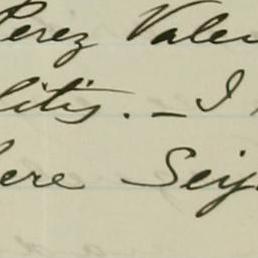 Perez Valen
litis. - I
ere Seij